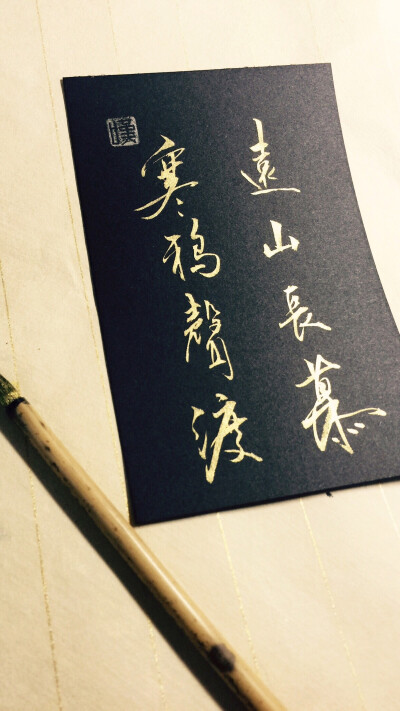 遠山長慕
寒鴉聲渡